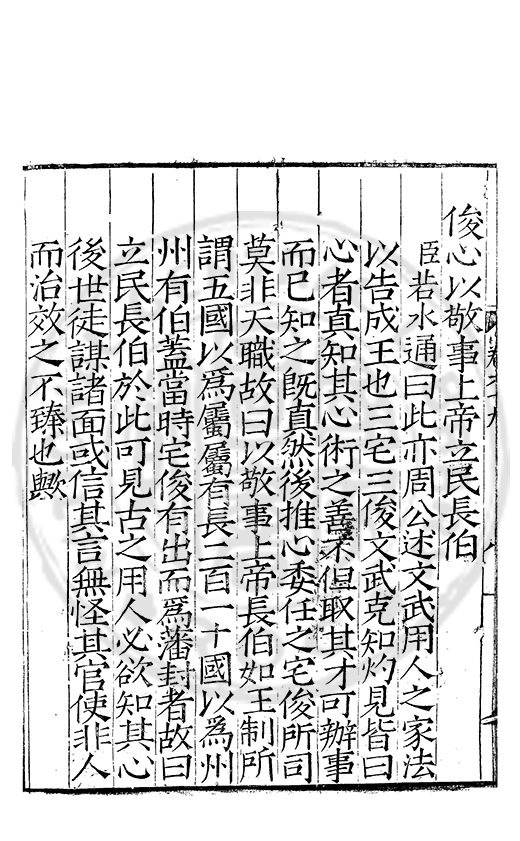 俊心以敬事上帝立民長伯
臣若水通曰此亦周公述文武用人之家法
以告成王也三宅三俊文武克知灼見皆曰
心者真知其心術之善不但取其才可辦事
而已知之旣真然後推心委任之宅俊所司
莫非天職故曰以敬事上帝長伯如王制所
謂五國以爲屬屬有長二百一十國以爲州
州有伯蓋當時宅俊有出而爲藩封者故曰
立民長伯於此可見古之用人必欲知其心
後世徒謀諸面或信其言無怪其官使非人
而治效之不臻也歟